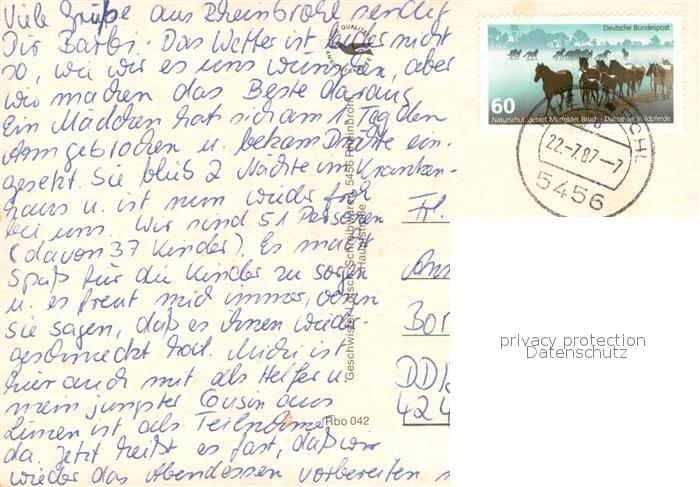 Viele Grüße aus Rheinbrohl sendet
Dir Barbi. Das Wetter ist leider nicht
so, wie wir es uns wünschen, aber
wir machen das Beste daraus
Ein Mädchen hat sich am 1. Tag den
Arm gebrochen u. bekam Drähte ein-
gesetzt. Sie blieb 2 Nächte im Kranken-
haus u. ist nun wieder froh
bei uns. Wir sind 51 Personen
(davon 37 Kinder). Es macht
Spaß für die Kinder zu sorgen
u. es freut mich immer, wenn
sie sagen, daß es ihnen wieder
geschmeckt hat. Michi ist
hier auch mit als Helfer u.
mein jüngster Cousin aus
als Teilnehmer
da. Jetzt heißt es fast, daß wir
wieder das Abendessen vorbereiten
Geschwister Schreibwaren, 5456 Rheinbrohl
Hauptstraße
Rbo 042
QUALITÄT
Deutsche Bundespost
60
Naturschutzgebiet Merfelder Bruch · Dülmener Wildpferde
22.-7.87-7
5456
Frl.
Bor
DDR
424
privacy protection
Datenschutz